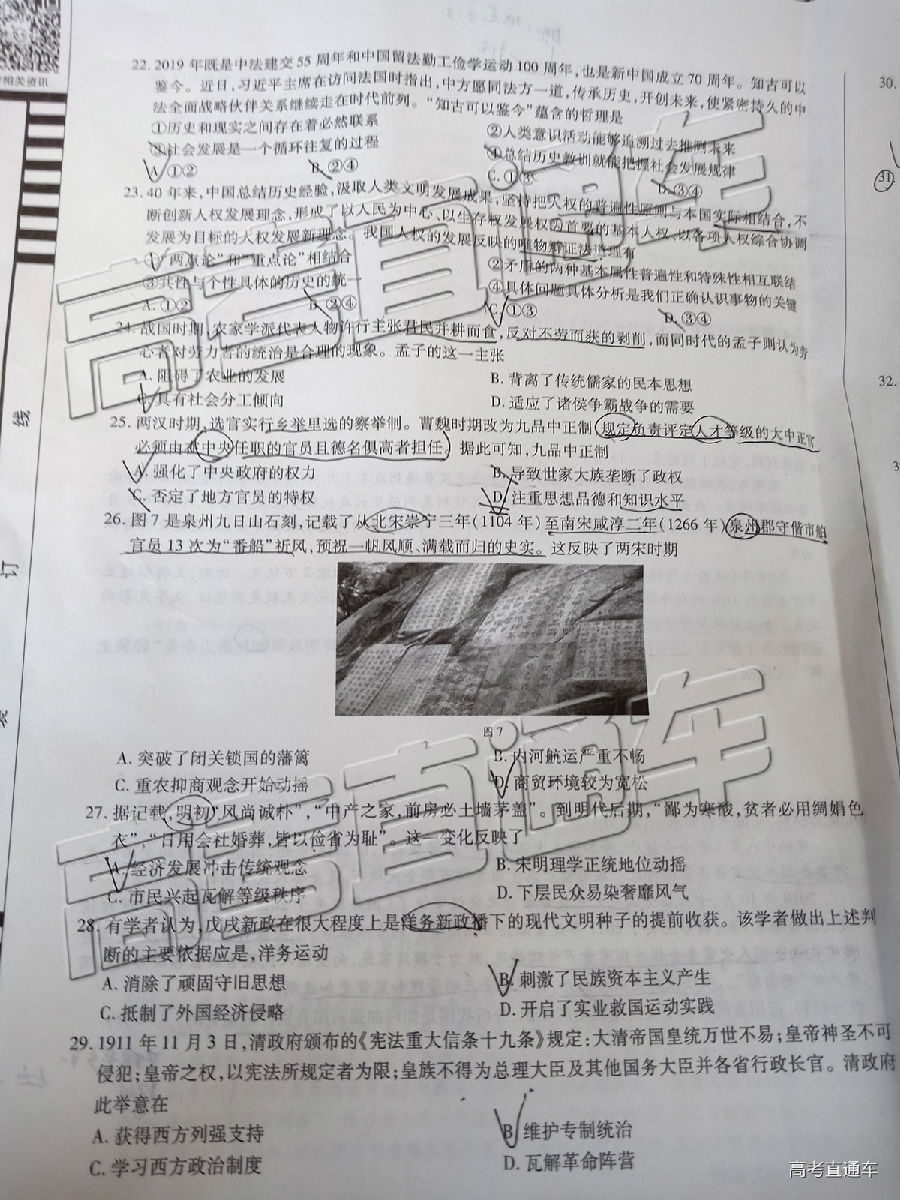 相关资讯
22. 2019 年既是中法建交 55 周年和中国留法勤工俭学运动 100 周年,也是新中国成立 70 周年。知古可以
鉴今。近日,习近平主席在访问法国时指出,中方愿同法方一道,传承历史,开创未来,使紧密持久的中
法全面战略伙伴关系继续走在时代前列。“知古可以鉴今”蕴含的哲理是
①历史和现实之间存在着必然联系
②人类意识活动能够追溯过去推测未来
③社会发展是一个循环往复的过程
④总结历史教训就能把握社会发展规律
A. ①② B. ②④ C. ①③ D. ③④
23. 40 年来,中国总结历史经验,汲取人类文明发展成果,坚持把人权的普遍性原则与本国实际相结合,不
断创新人权发展理念,形成了以人民为中心、以生存权发展权为首要的基本人权、以各项人权综合协调
发展为目标的人权发展新理念。我国人权的发展反映的唯物辩证法道理有
①“两点论”和“重点论”相结合
②矛盾的两种基本属性普遍性和特殊性相互联结
③共性与个性具体的历史的统一
④具体问题具体分析是我们正确认识事物的关键
A. ①② B. ②④ C. ①③ D. ③④
24. 战国时期,农家学派代表人物许行主张君民并耕而食,反对不劳而获的剥削,而同时代的孟子则认为劳
心者对劳力者的统治是合理的现象。孟子的这一主张
A. 阻碍了农业的发展 B. 背离了传统儒家的民本思想
C. 具有社会分工倾向 D. 适应了诸侯争霸战争的需要
25. 两汉时期,选官实行乡举里选的察举制。曹魏时期改为九品中正制,规定负责评定人才等级的大中正官
必须由在中央任职的官员且德名俱高者担任。据此可知,九品中正制
A. 强化了中央政府的权力 B. 导致世家大族垄断了政权
C. 否定了地方官员的特权 D. 注重思想品德和知识水平
26. 图 7 是泉州九日山石刻,记载了从北宋崇宁三年(1104 年)至南宋咸淳二年(1266 年)泉州郡守偕市舶
官员 13 次为“番船”祈风,预祝一帆风顺、满载而归的史实。这反映了两宋时期
图 7
A. 突破了闭关锁国的藩篱 B. 内河航运严重不畅
C. 重农抑商观念开始动摇 D. 商贸环境较为宽松
27. 据记载,明初“风尚诚朴”,“中产之家,前房必土墙茅盖”。到明代后期,“鄙为寒酸,贫者必用绸娟色
衣”,“日用会社婚葬,皆以俭省为耻”。这一变化反映了
A. 经济发展冲击传统观念 B. 宋明理学正统地位动摇
C. 市民兴起瓦解等级秩序 D. 下层民众易染奢靡风气
28. 有学者认为,戊戌新政在很大程度上是洋务新政播下的现代文明种子的提前收获。该学者做出上述判
断的主要依据应是,洋务运动
A. 消除了顽固守旧思想 B. 刺激了民族资本主义产生
C. 抵制了外国经济侵略 D. 开启了实业救国运动实践
29. 1911 年 11 月 3 日,清政府颁布的《宪法重大信条十九条》规定:大清帝国皇统万世不易;皇帝神圣不可
侵犯;皇帝之权,以宪法所规定者为限;皇族不得为总理大臣及其他国务大臣并各省行政长官。清政府
此举意在
A. 获得西方列强支持 B. 维护专制统治
C. 学习西方政治制度 D. 瓦解革命阵营
30.
31
32.
3
线
订
高考直通车
高考直通车
高考直通车